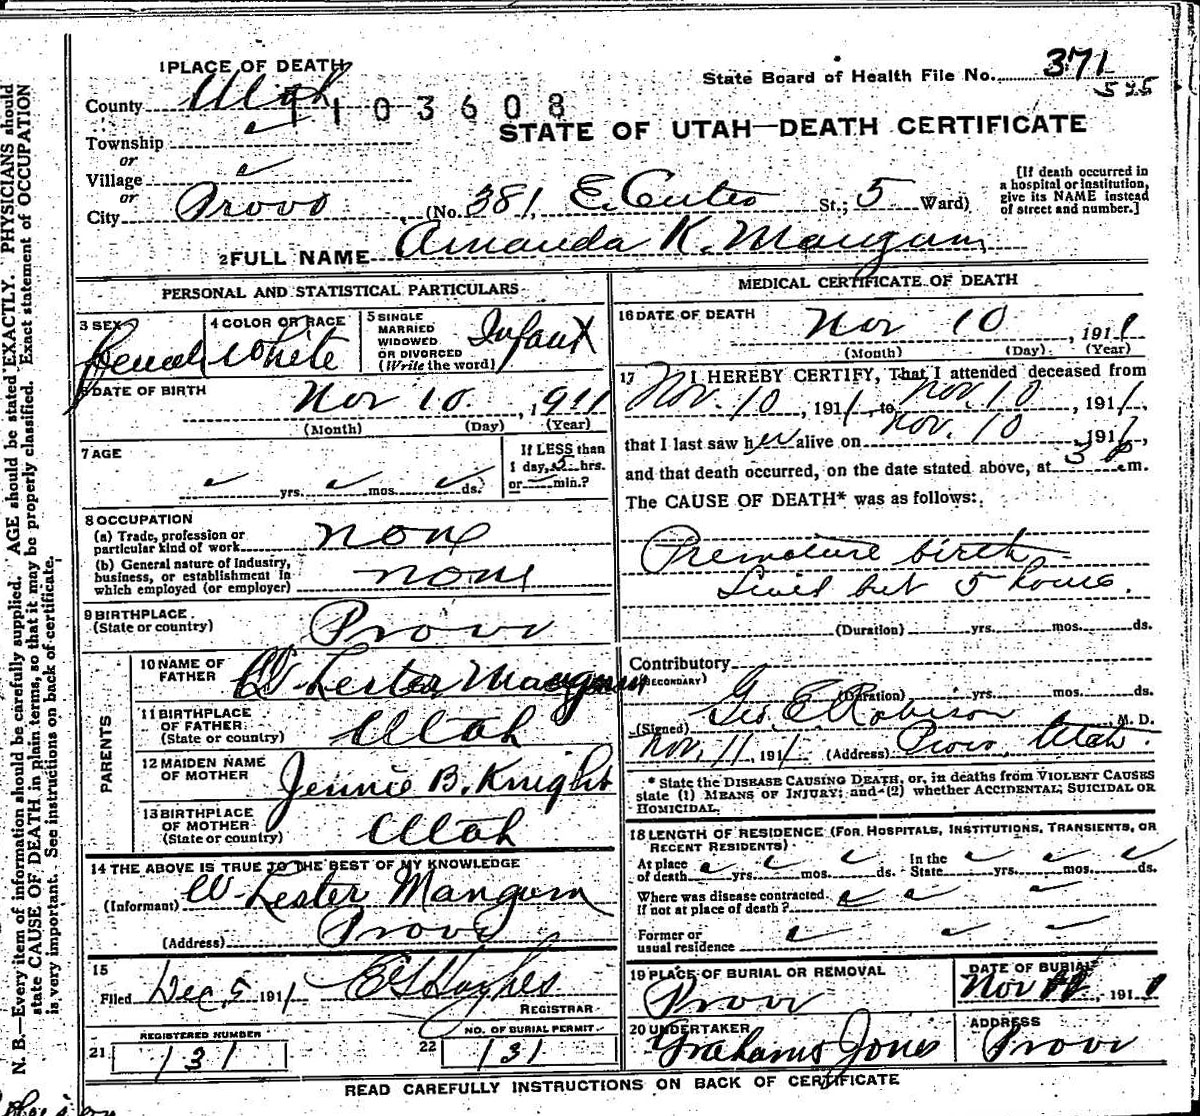 1 PLACE OF DEATH
State Board of Health File No. 371
525
County Utah
1103608
Township
or
STATE OF UTAH—DEATH CERTIFICATE
Village
or
City Provo (No. 381, E. Center St.; 5 Ward)
[If death occurred in a hospital or institution, give its NAME instead of street and number.]
2 FULL NAME Amanda K. Mangum
PERSONAL AND STATISTICAL PARTICULARS
3 SEX Female
4 COLOR OR RACE White
5 SINGLE MARRIED WIDOWED OR DIVORCED (Write the word) Infant
6 DATE OF BIRTH Nov 10, 1911
(Month) (Day) (Year)
7 AGE
yrs. mos. ds.
If LESS than
1 day, 5 hrs.
or min.?
8 OCCUPATION
(a) Trade, profession or
particular kind of work none
(b) General nature of Industry,
business, or establishment in
which employed (or employer) none
9 BIRTHPLACE
(State or country) Provo
PARENTS
10 NAME OF
FATHER W Lester Mangum
11 BIRTHPLACE
OF FATHER
(State or country) Utah
12 MAIDEN NAME
OF MOTHER Jennie B. Knight
13 BIRTHPLACE
OF MOTHER
(State or country) Utah
14 THE ABOVE IS TRUE TO THE BEST OF MY KNOWLEDGE
(Informant) W Lester Mangum
(Address) Provo
15
Filed Dec. 5 1911 E S Hughes
REGISTRAR
REGISTERED NUMBER
21 131
NO. OF BURIAL PERMIT
22 131
MEDICAL CERTIFICATE OF DEATH
16 DATE OF DEATH
Nov 10, 1911
(Month) (Day) (Year)
17 I HEREBY CERTIFY, That I attended deceased from
Nov. 10, 1911, to Nov. 10, 1911,
that I last saw her alive on Nov. 10, 1911,
and that death occurred, on the date stated above, at 3 P.m.
The CAUSE OF DEATH* was as follows:
Premature birth
Lived but 5 hours.
(Duration) yrs. mos. ds.
Contributory
(SECONDARY)
(Duration) yrs. mos. ds.
(Signed) Geo. E. Robison, M. D.
Nov. 11, 1911 (Address) Provo, Utah.
* State the DISEASE CAUSING DEATH, or, in deaths from VIOLENT CAUSES
state (1) MEANS OF INJURY; and (2) whether ACCIDENTAL, SUICIDAL OR
HOMICIDAL.
18 LENGTH OF RESIDENCE (FOR HOSPITALS, INSTITUTIONS, TRANSIENTS, OR
RECENT RESIDENTS)
At place
of death yrs. mos. ds.
In the
State yrs. mos. ds.
Where was disease contracted
if not at place of death?
Former or
usual residence
19 PLACE OF BURIAL OR REMOVAL
Provo
DATE OF BURIAL
Nov 11, 1911
20 UNDERTAKER
Grahams Jones
ADDRESS
Provo
READ CAREFULLY INSTRUCTIONS ON BACK OF CERTIFICATE
N. B.—Every item of information should be carefully supplied. AGE should be stated EXACTLY. PHYSICIANS should
state CAUSE OF DEATH in plain terms, so that it may be properly classified. Exact statement of OCCUPATION
is very important. See instructions on back of certificate.